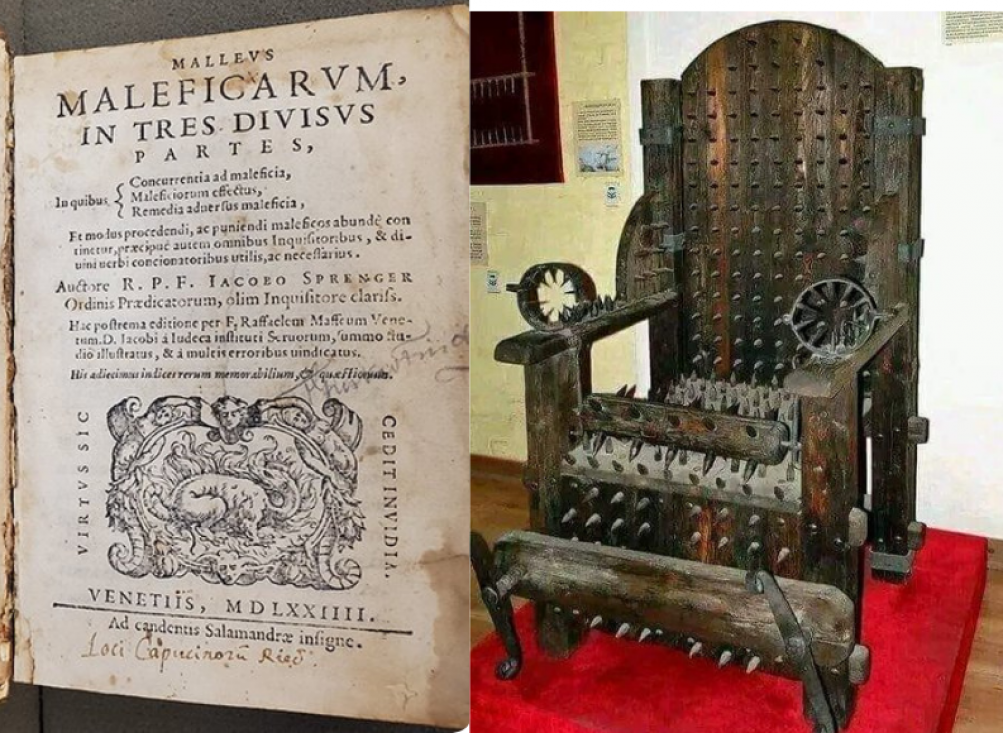 MALLEVS
MALEFICARVM,
IN TRES DIVISVS
PARTES,
In quibus
Concurrentia ad maleficia,
Maleficiorum effectus,
Remedia aduersus maleficia,
Et modus procedendi, ac puniendi maleficos abundè con
tinetur, præcipuè autem omnibus Inquisitoribus, & di-
uini uerbi concionatoribus utilis, ac necessarius.
Auctore R. P. F. IACOBO SPRENGER
Ordinis Prædicatorum, olim Inquisitore clariss.
Hac postrema editione per F. Raffaelem Maffeum Vene-
tum. D. Iacobi à Iudeca instituti Seruorum, summo stu-
dio illustratus, & à multis erroribus uindicatus.
His adiecimus indices rerum memorabilium, & quæstionum.
VIRTVS SIC
CEDIT INVIDIA.
VENETIIS, MDLXXIIII.
Ad candentis Salamandræ insigne.
Loci Capucinorũ